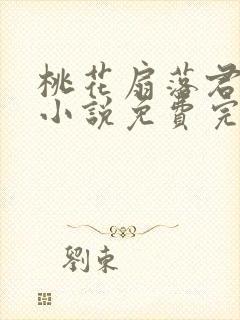 桃花扇落君
小說免費完
劉東